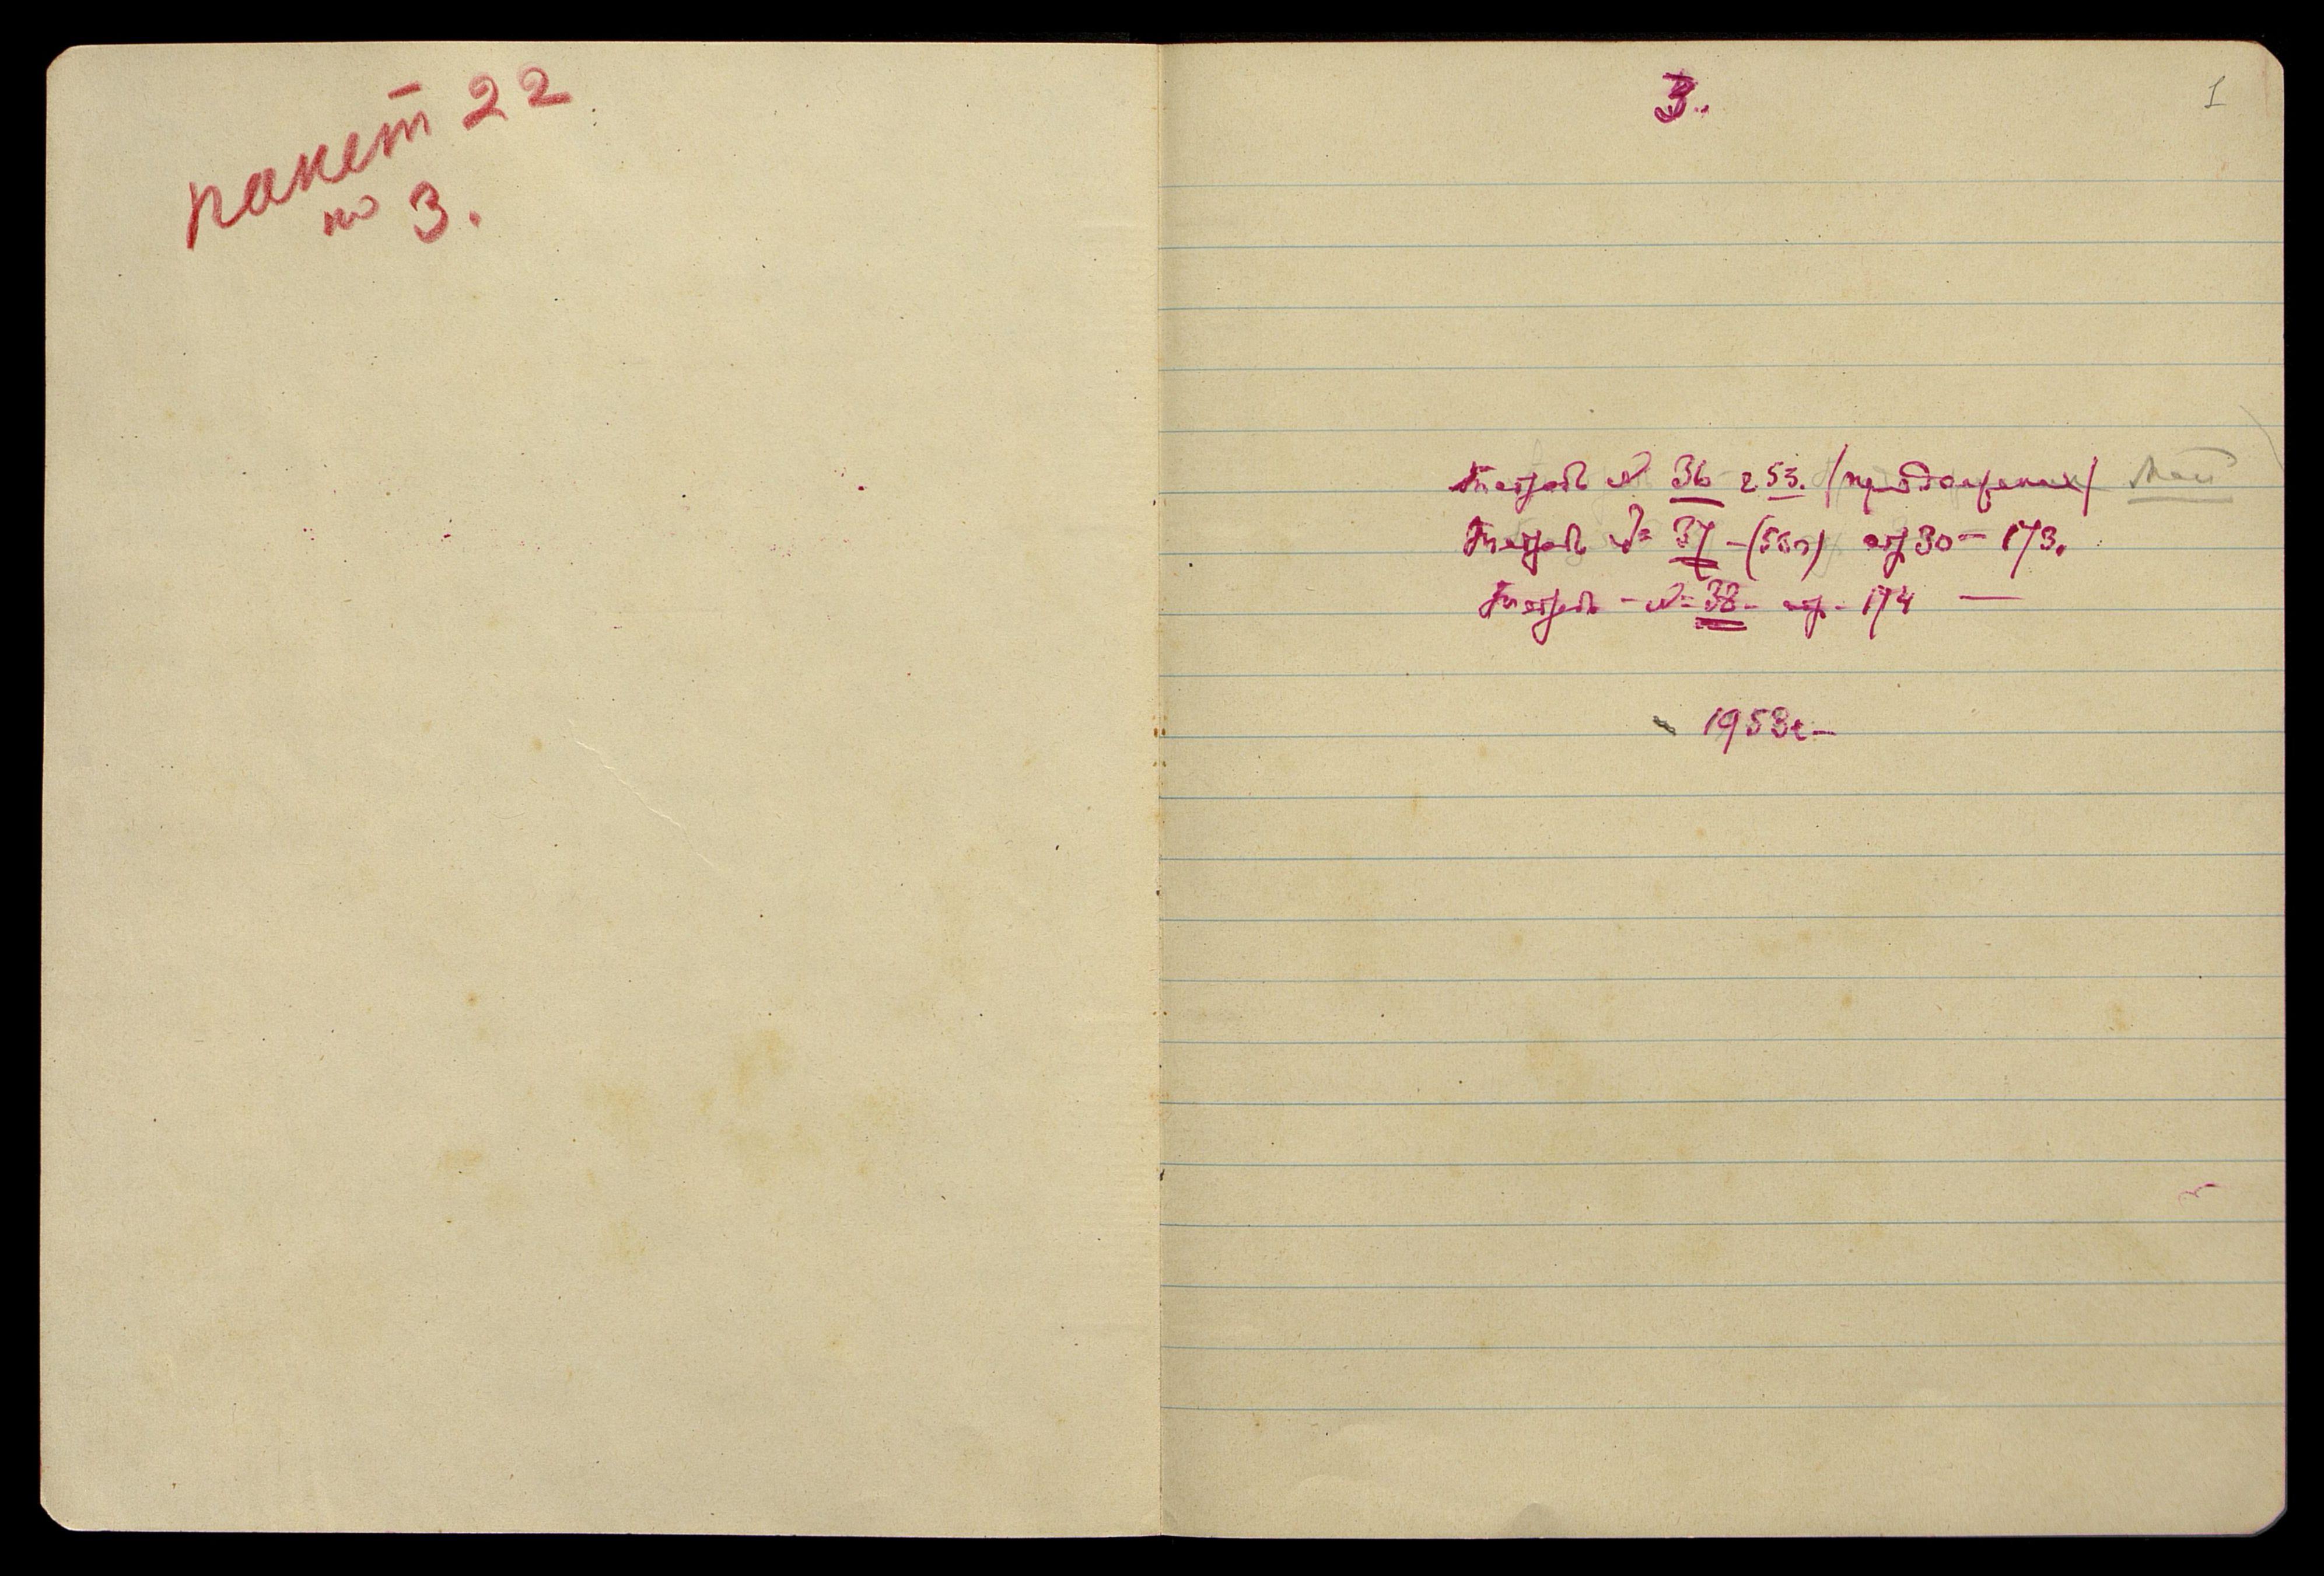 пакет 22
№ 3.
3.
1
Тетрадь № 36 253. /продолжение/ Май
Тетрадь № 37 – (53г) стр 30 – 173.
Тетрадь – № 38 – стр. 174 —
1953г –